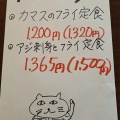 ◎ カマスのフライ定食
1200円(1,320円)
◎アジ刺身とフライ定食
1365円(1,500円)